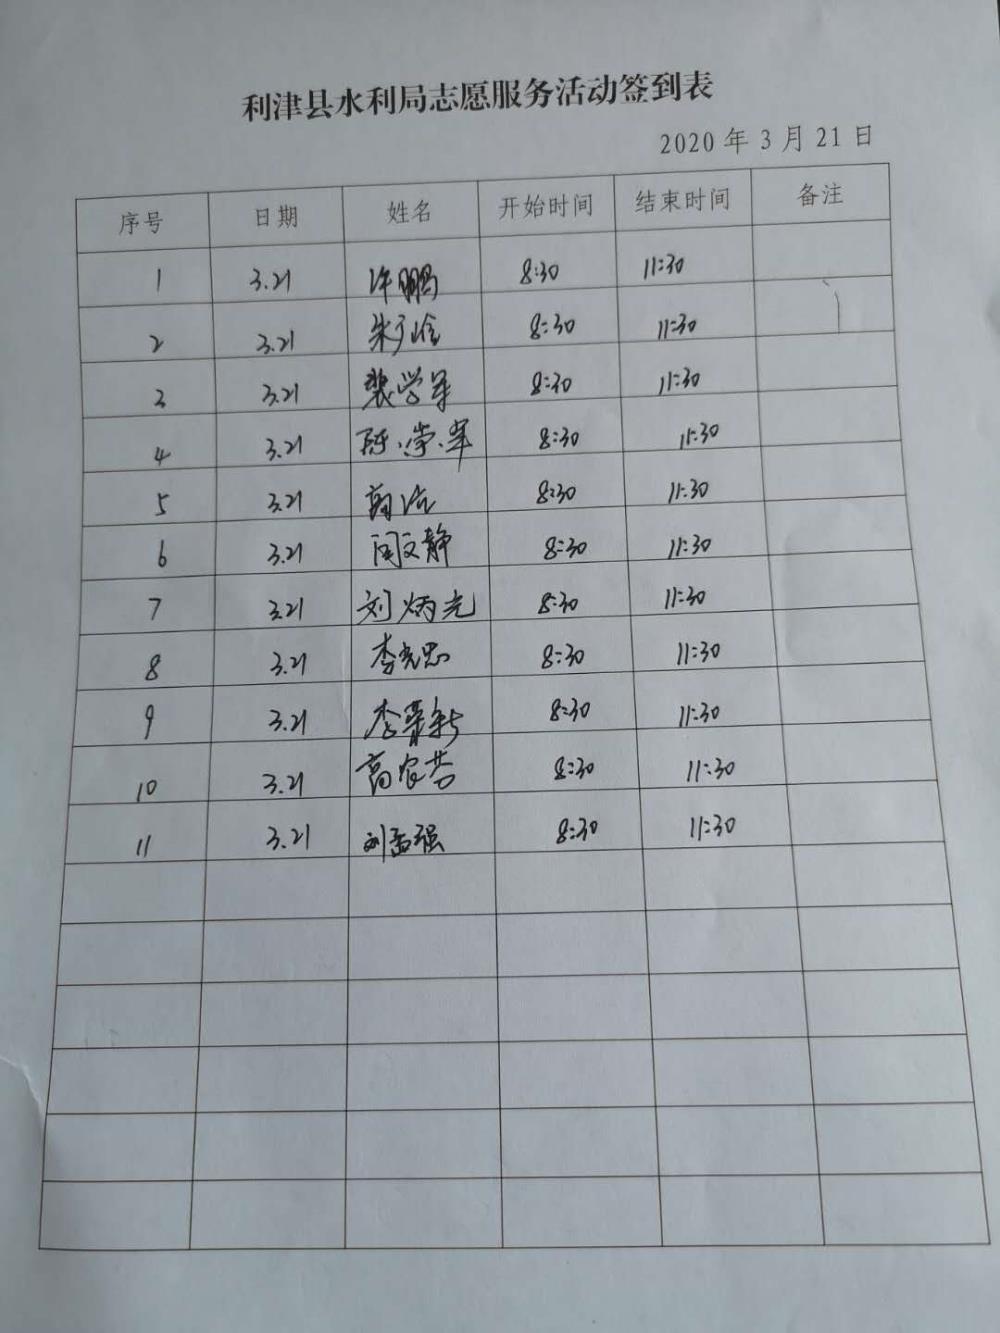 利津县水利局志愿服务活动签到表
2020 年 3 月 21 日
序号 日期 姓名 开始时间 结束时间 备注
1 3.21 许鹏 8:30 11:30
2 3.21 8:30 11:30
3 3.21 裴学军 8:30 11:30
4 3.21 陈学军 8:30 11:30
5 3.21 8:30 11:30
6 3.21 闫文静 8:30 11:30
7 3.21 刘炳光 8:30 11:30
8 3.21 李光忠 8:30 11:30
9 3.21 8:30 11:30
10 3.21 8:30 11:30
11 3.21 刘孟强 8:30 11:30